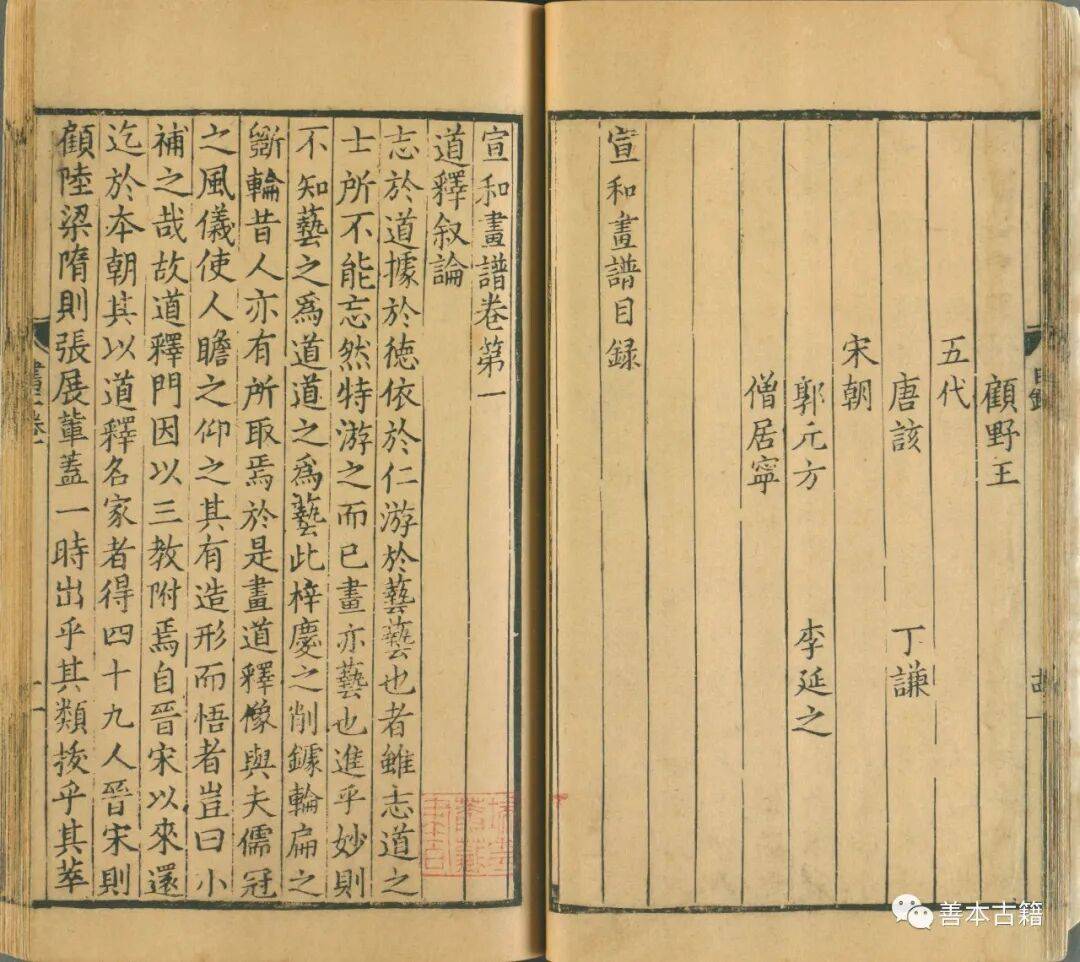 顧野王
五代
唐該 丁謙
宋朝
郭元方 李延之
僧居寧
宣和畫譜目録
宣和畫譜卷第一
道釋叙論
志於道據於德依於仁游於藝藝也者雖志道之
士所不能忘然特游之而已畫亦藝也進乎妙則
不知藝之爲道道之爲藝此梓慶之削鐻輪扁之
斲輪昔人亦有所取焉於是畫道釋像與夫儒冠
之風儀使人瞻之仰之其有造形而悟者豈曰小
補之哉故道釋門因以三教附焉自晉宋以來還
迄於本朝其以道釋名家者得四十九人晉宋則
顧陸梁隋則張展輩蓋一時出乎其類拔乎其萃
善本古籍